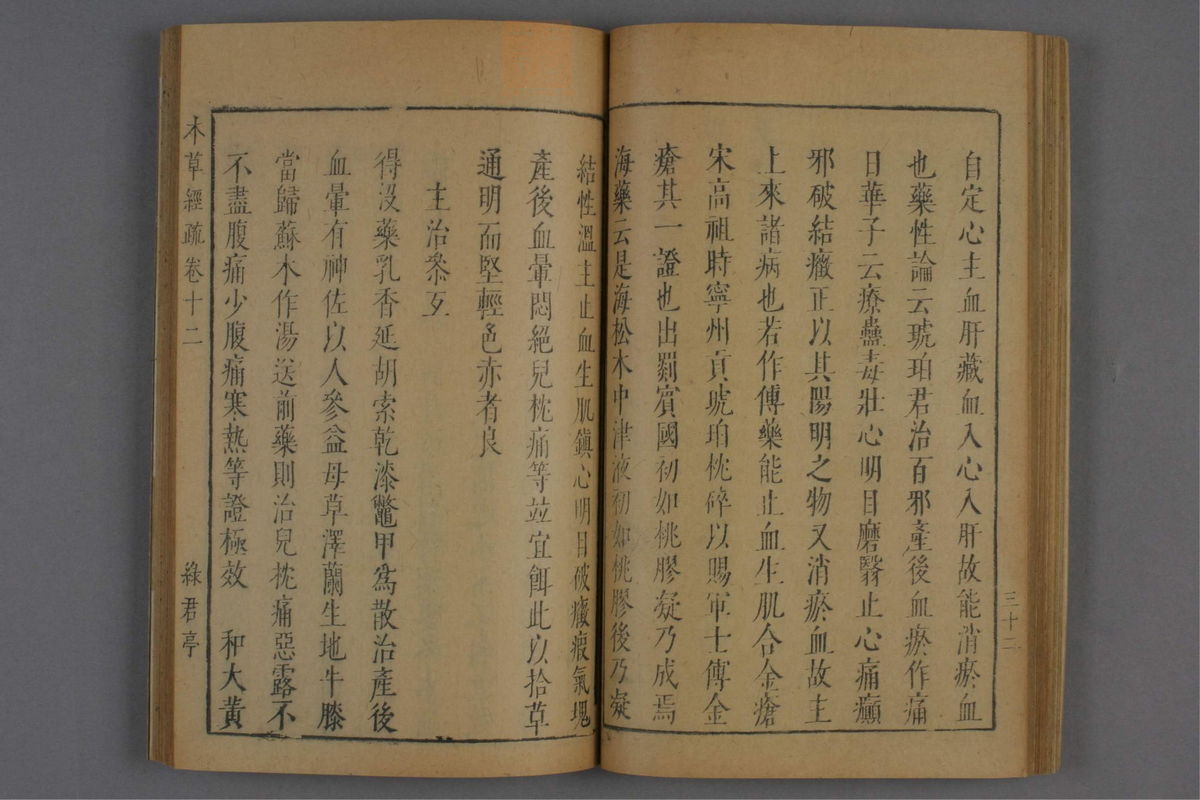 自定心主血肝藏血入心入肝故能消瘀血
也藥性論云琥珀君治百邪產後血瘀作痛
日華子云療蠱毒壯心明目磨翳止心痛癲
邪破結癥正以其陽明之物又消瘀血故主
上來諸病也若作傅藥能止血生肌合金瘡
宋高祖時寧州貢琥珀枕碎以賜軍士傅金
瘡其一證也出罽賓國初如桃膠凝乃成焉
海藥云是海松木中津液初如桃膠後乃凝
三十二
結性溫主止血生肌鎮心明目破癥瘕氣塊
產後血暈悶絕兒枕痛等並宜餌此以拾草
通明而堅輕色赤者良
主治叅互
得沒藥乳香延胡索乾漆鼈甲為散治產後
血暈有神佐以人參益母草澤蘭生地牛膝
當歸蘇木作湯送前藥則治兒枕痛惡露不
不盡腹痛少腹痛寒熱等證極效　和大黃
本草經疏卷十二
綠君亭